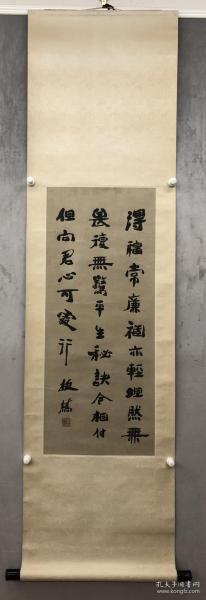 得福常廉禍亦輕坦然無
畏復無驚平生秘訣今相付
但向君心可處行 板橋
孔夫子旧书网